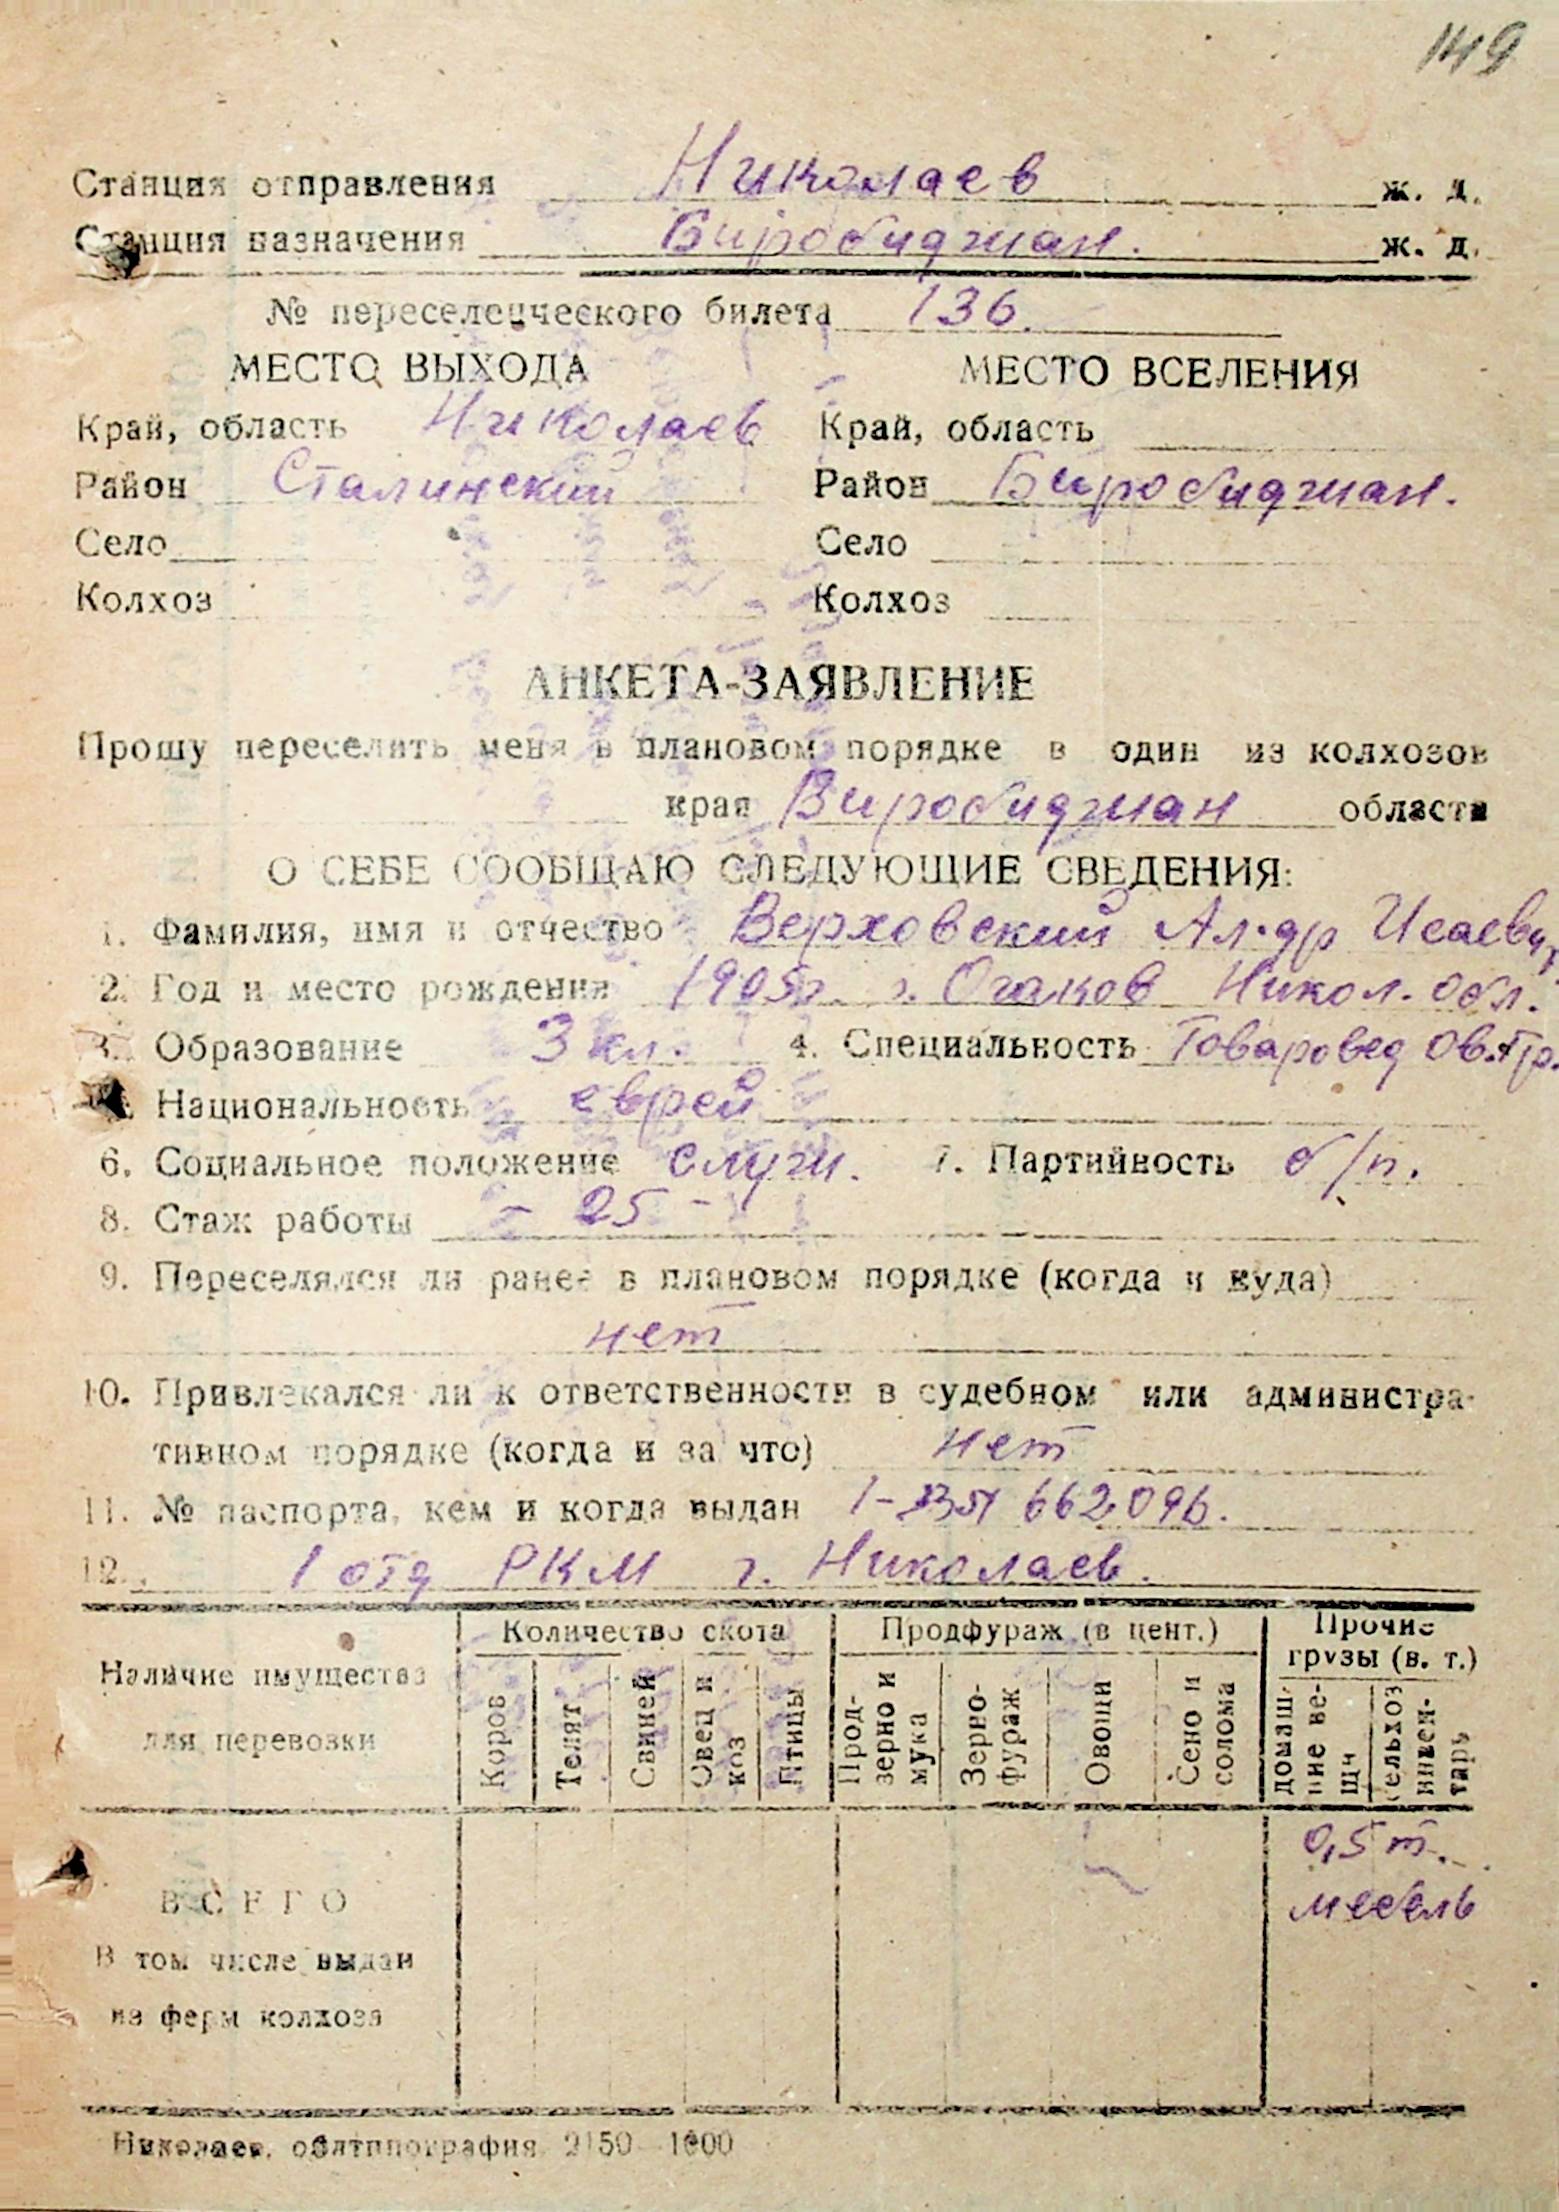 149
Станция отправления Николаев ж. д.
Станция назначения Биробиджан. ж. д.
№ переселенческого билета 136.
МЕСТО ВЫХОДА МЕСТО ВСЕЛЕНИЯ
Край, область Николаев Край, область
Район Сталинский Район Биробиджан.
Село Село
Колхоз Колхоз
АНКЕТА-ЗАЯВЛЕНИЕ
Прошу переселить меня в плановом порядке в один из колхозов
края Биробиджан области
О СЕБЕ СООБЩАЮ СЛЕДУЮЩИЕ СВЕДЕНИЯ:
1. Фамилия, имя и отчество Верховский Ал-др Исаевич
2. Год и место рождения 1905г. г. Очаков Никол. обл.
3. Образование 3 кл. 4. Специальность Товаровед
Национальность еврей
6. Социальное положение служ. 7. Партийность б/п.
8. Стаж работы - 25 -
9. Переселялся ли ранее в плановом порядке (когда и куда)
нет
10. Привлекался ли к ответственности в судебном или администра-
тивном порядке (когда и за что) нет
11. № паспорта, кем и когда выдан 662096.
12. 1 отд РКМ г. Николаев.
Наличие имущества для перевозки
Количество скота Продфураж (в цент.) Прочие грузы (в. т.)
Коров Телят Свиней Овец и коз Птицы Прод-зерно и мука Зерно-фураж Овощи Сено и солома домаш-ние ве-щи сельхоз инвен-тарь
0,5 т.
мебель
ВСЕГО
В том числе выдан
на ферм колхоза
Николаев, облтипография 2150—1000